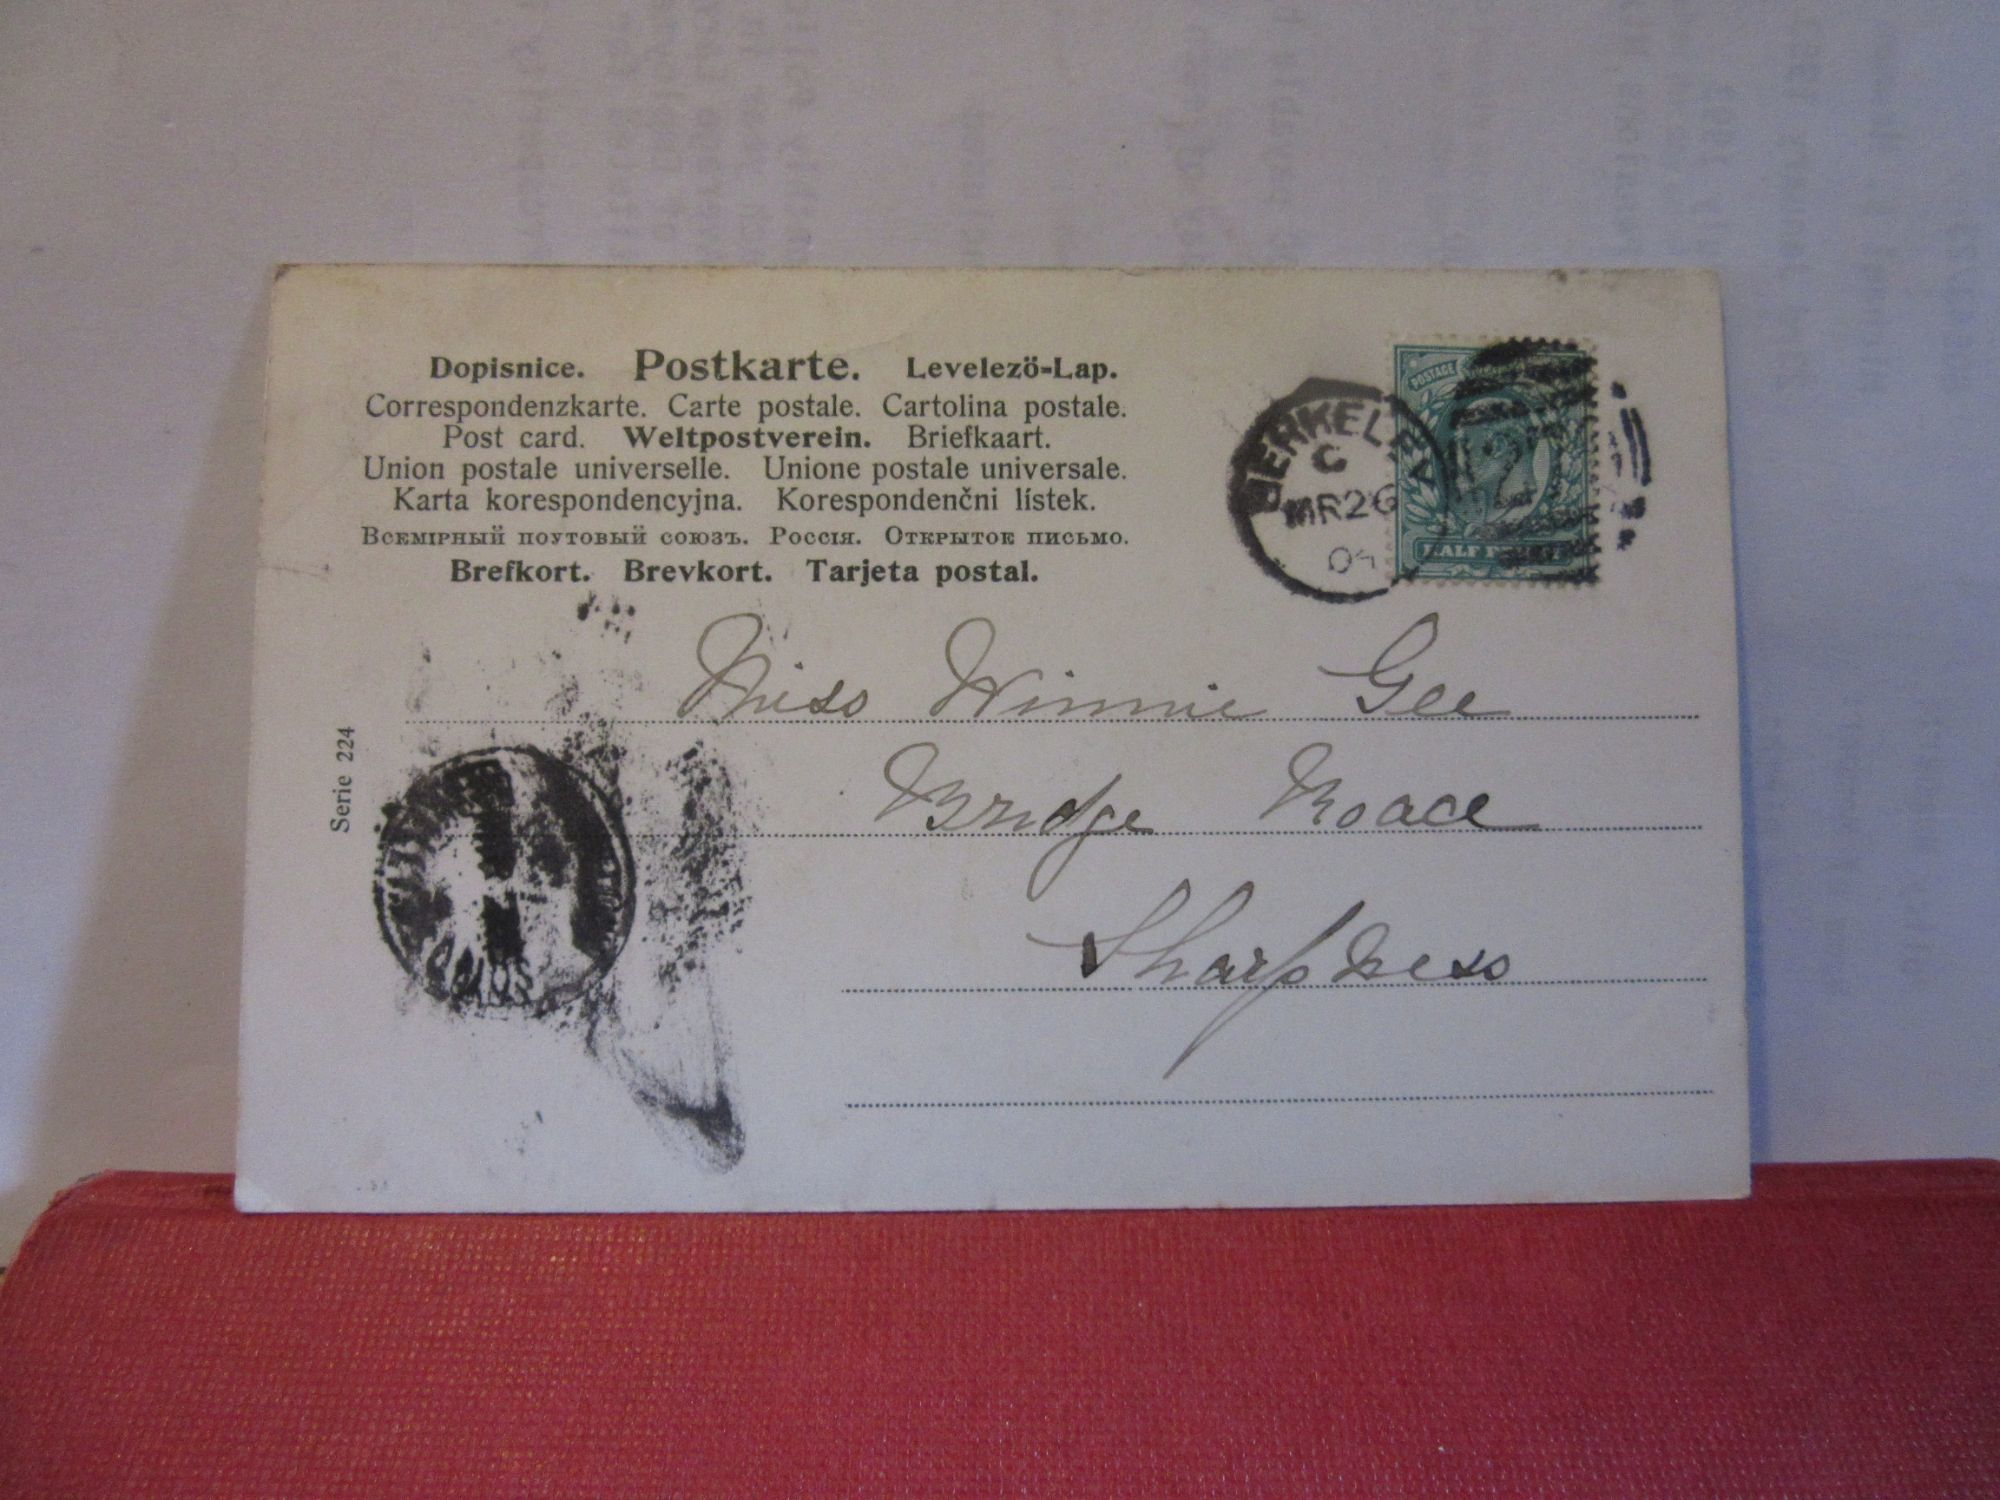 Dopisnice. Postkarte. Levelezö-Lap.
Correspondenzkarte. Carte postale. Cartolina postale.
Post card. Weltpostverein. Briefkaart.
Union postale universelle. Unione postale universale.
Karta korespondencyjna. Korespondenčni lístek.
Всемірный поутовый союзъ. Россія. Открытое письмо.
Brefkort. Brevkort. Tarjeta postal.
POSTAGE
HALF PENNY
BERKELEY
C
MR 26
Miss Winnie Gee
Bridge Roace
Sharpness
Serie 224